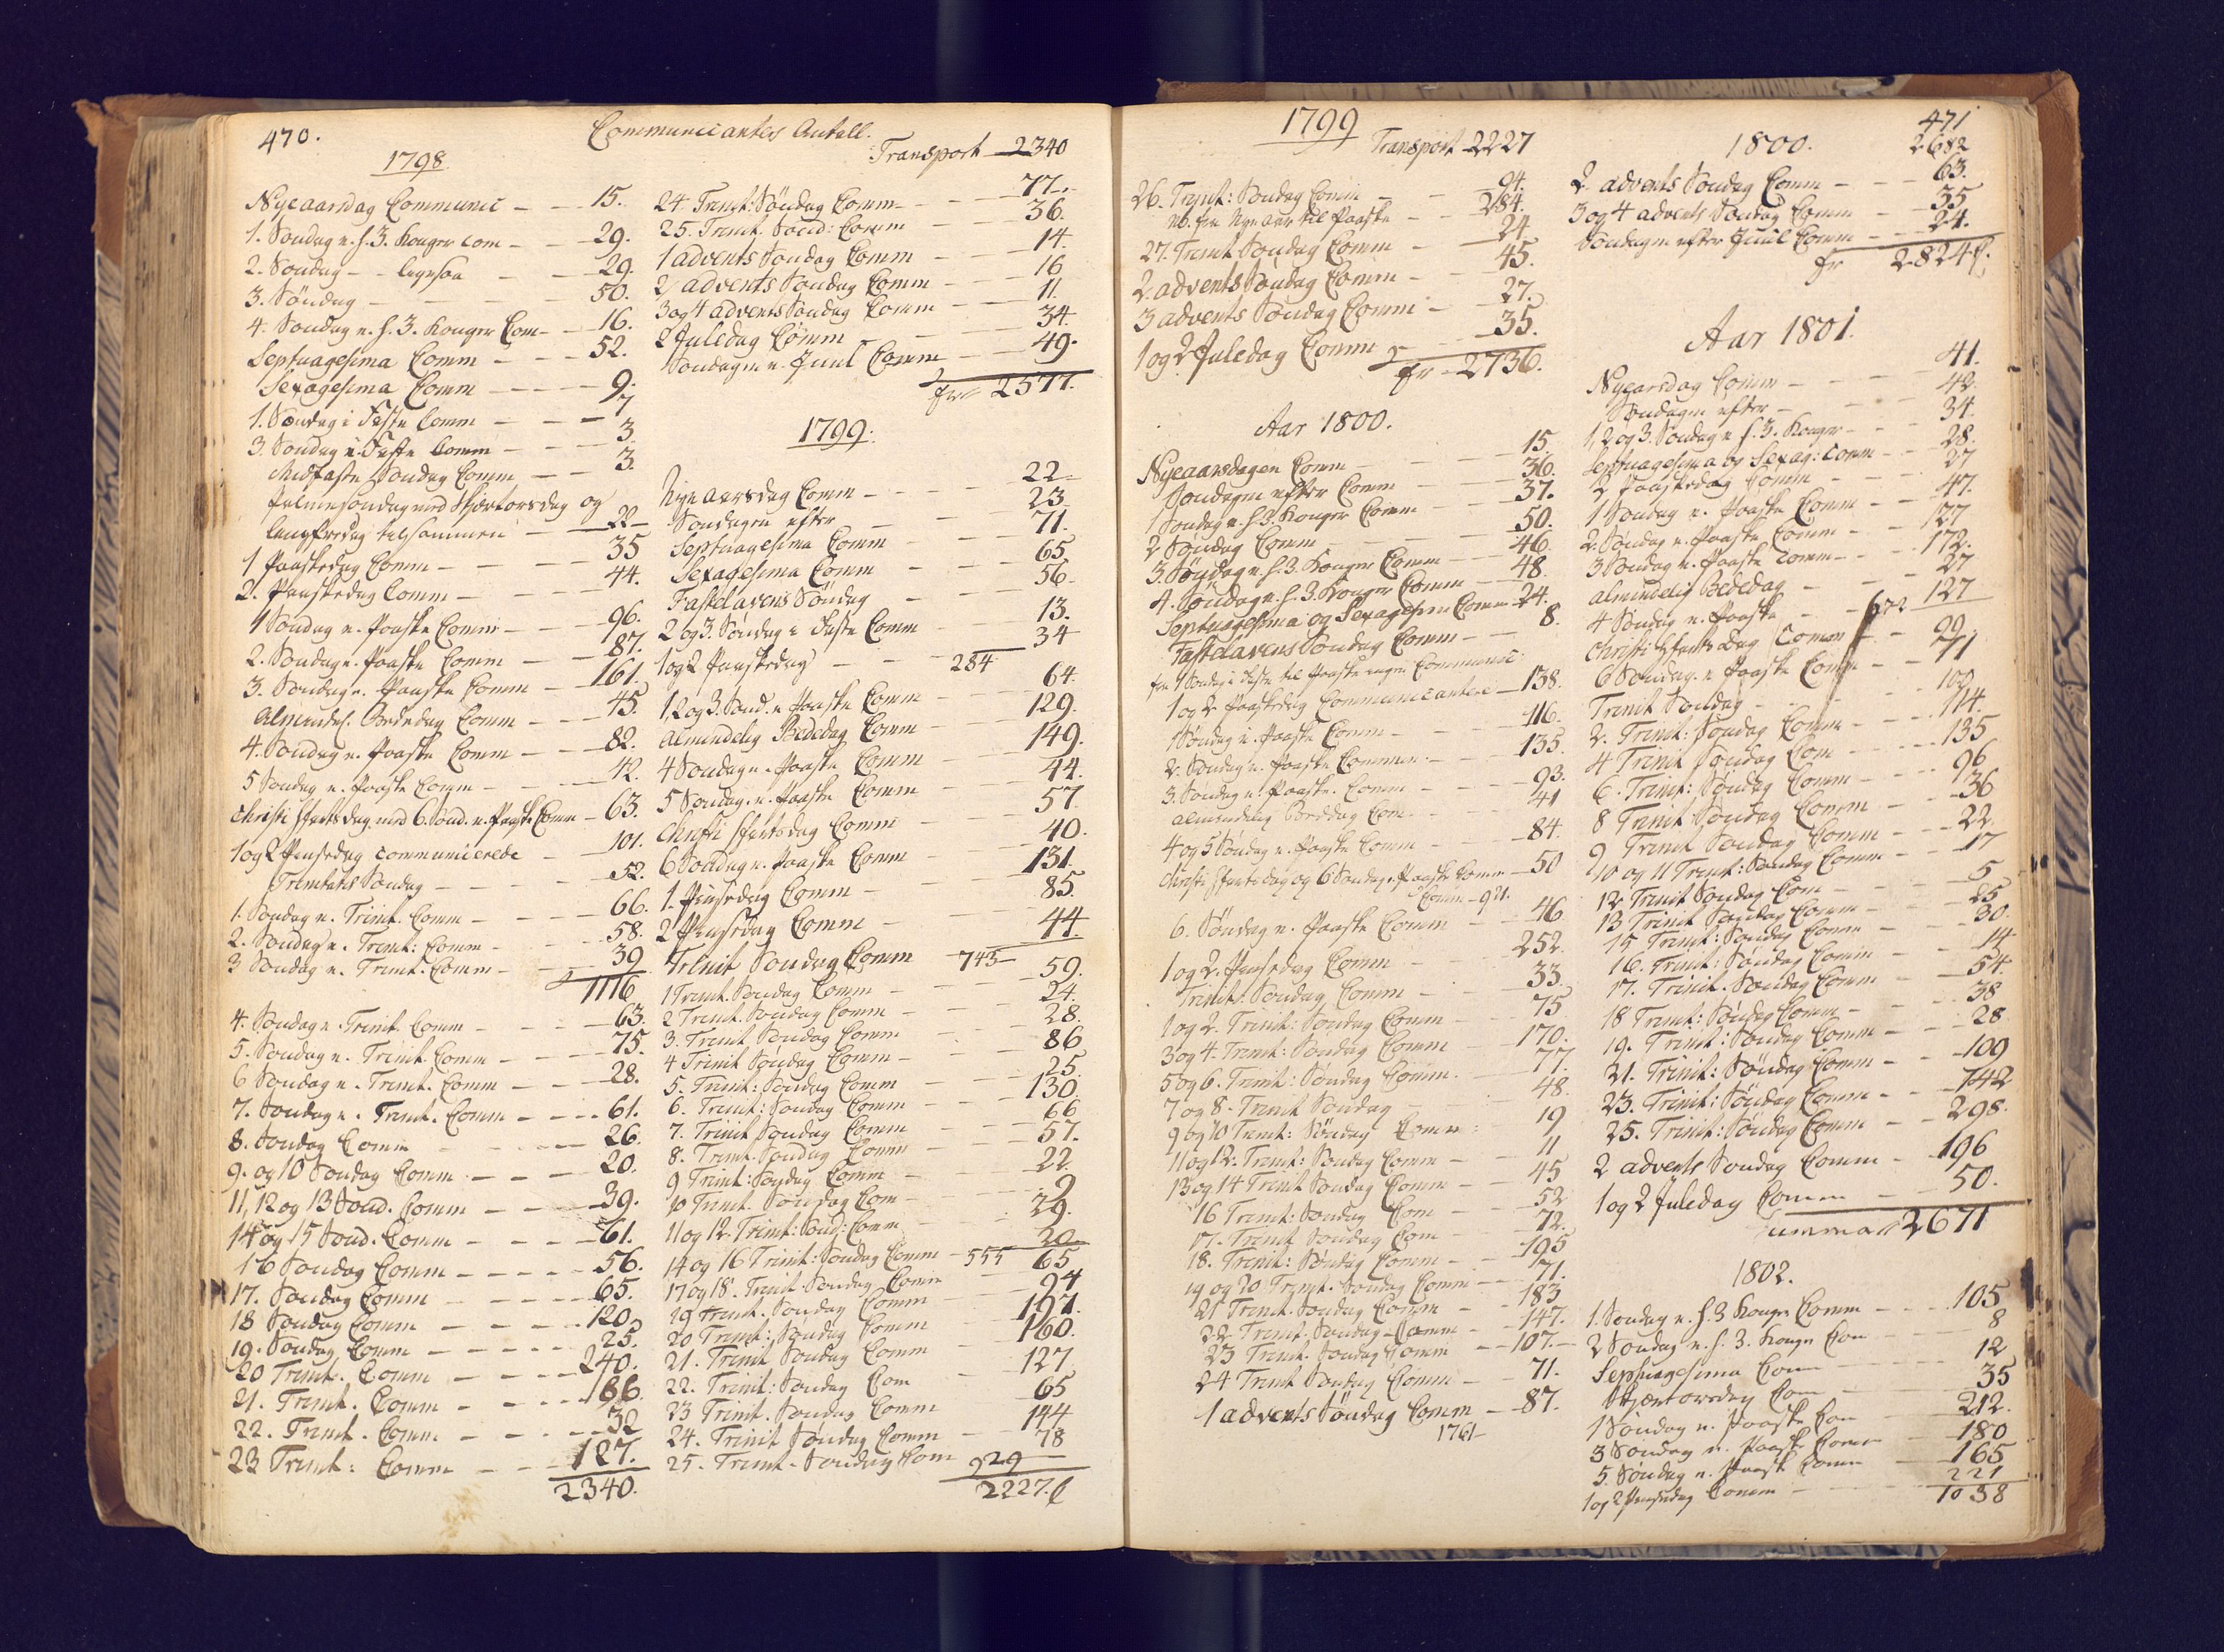 470.
Communicantes Antall.
1798
Nyeaarsdag Communic - - 15.
1. Søndag e. h. 3. Konger Com - - 29.
2. Søndag - - - - 29.
3. Søndag - - - - 50.
4. Søndag e. h. 3. Konger Com - - 16.
Septuagesima Comm - - - 52.
Sexagesima Comm - - - - 9.
1. Søndag i Faste Comm - - - 7
3. Søndag i Faste Comm - - - 3.
Midfaste Søndag Comm - - 3.
Palmesøndag med Skjertorsdag og
Langfredag tilsammen - 22 -
1 Paaskedag Comm - - - - 35
2. Paaskedag Comm - - - - 44.
1 Søndag e. Paaske Comm - - - 96.
2. Søndag e. Paaske Comm - - 87.
3. Søndag e. Paaske Comm - - 161.
Almindel. Bededag Comm - - - 45.
4. Søndag e. Paaske Comm - - - 82.
5 Søndag e. Paaske Comm - - - 42.
Christi Hfartsdag med 6. Sønd. e. Paaske Comm - 63.
1 og 2 Pinsedag communicerede - 101.
Trinitatis Søndag - - - - 52.
1. Søndag e. Trinit. Comm - - - 66.
2. Søndag e. Trinit: Comm - - - 58.
3 Søndag e. Trinit. Comm - - - 39
1116
4. Søndag e. Trinit. Comm - - - 63.
5. Søndag e. Trinit Comm - - - 75.
6 Søndag e. Trinit. Comm - - - 28.
7. Søndag e. Trinit. Comm - - - 61.
8. Søndag Comm - - - 26.
9. og 10 Søndag Comm - - - 20.
11, 12 og 13 Sønd. Comm - - - 39.
14 og 15 Sønd. Comm - - - 61.
16 Søndag Comm - - - - 56.
17. Søndag Comm - - - 65.
18 Søndag Comm - - - - 120.
19. Søndag Comm - - - - 25.
20 Trinit. Comm - - - 240.
21. Trinit. Comm - - - 186.
22. Trinit. Comm - - - 32
23 Trinit: Comm - - 127.
2340.
Transport 2340
24. Trinit: Søndag Comm - - - 77.
25. Trinit. Sønd: Comm - - 36.
1 advents Søndag Comm - - - 14.
2 advents Søndag Comm - - 16
3 og 4 advents Søndag Comm - - 11.
2 Juledag Comm - - 34.
Søndagen e. Juul Comm - - 49.
2577.
1799.
Nye aarsdag Comm - - - 22 -
Søndagen efter - - - 23
Septuagesima Comm - - - 71.
Sexagesima Comm - - - 65
Fastelavens Søndag - - - 56 -
2 og 3. Søndag i Faste Comm - - 13.
1 og 2 Paaskedag - - 34
284
1, 2 og 3. Sønd. e. Paaske Comm - - 64.
Almindelig Bededag Comm - - 129.
4 Søndag e. Paaske Comm - - 149.
5 Søndag e. Paaske Comm - - 44.
Christi Hfartsdag Comm - - 57
6 Søndag e. Paaske Comm - - 40.
1. Pinsedag Comm - - 131.
2 Pinsedag Comm - - 85.
Trinit Søndag Comm - 44.
743
1 Trinit. Søndag Comm - - 59.
2 Trinit. Søndag Comm - - 24.
3. Trinit Søndag Comm - - 28.
4 Trinit Søndag Comm - - 86
5. Trinit: Søndag Comm - - 25.
6. Trinit: Søndag Comm - - 130.
7. Trinit Søndag Comm - - 66
8. Trinit Søndag Comm - - 57.
9 Trinit: Søndag Comm - - 22.
10 Trinit. Søndag Com - - 9
11 og 12. Trinit: Sønd: Comm - - 29.
14 og 16 Trinit: Søndag Comm - 20.
555
17 og 18. Trinit. Søndag Comm - 65
19 Trinit. Søndag Comm - 94
20 Trinit: Søndag Comm - 197.
21. Trinit Søndag Comm - 160.
22. Trinit: Søndag Com - 127
23 Trinit. Søndag Comm - 65
24. Trinit Søndag Comm - 144
25. Trinit. Søndag Com - 78
929
2227.
1799
Transport 2227
26. Trinit: Søndag Comm - - 94.
Nb. fra Nye aar til Paaske - - 284.
27. Trinit Søndag Comm - - 24.
2. advents Søndag Comm - - 45.
3 advents Søndag Comm - - 27.
1 og 2 Juledag Comm - - 35.
2736.
Aar 1800.
Nyeaarsdagen Comm - - - 15
Søndagen efter Comm - - - 36.
1 Søndag e. h. 3. Konger Comm - - 37.
2 Søndag Comm - - - 50.
3. Søndag e. h. 3. Konger Comm - 46.
4. Søndag e. h. 3. Konger Comm - 48.
Septuagesima og Sexagesima Comm - 24.
Fastelavens Søndag Comm - - 8.
fra 1 Søndag i Faste til Paaske ingen Communic.
1 og 2 Paaskedag Communicantere - 138.
1 Søndag e. Paaske Comm - - 116.
2. Søndag e. Paaske Commun - - 135.
3. Søndag e. Paaske. Comm - - 93.
almindelig Bededag Com - - 41
4 og 5 Søndag e. Paaske Comm - - 84.
Christi Hfartsdag og 6 Søndag e. Paaske Comm - 50
921.
6. Søndag e. Paaske Comm - - 46.
1 og 2. Pinsedag Comm - - 252.
Trinit. Søndag Comm - - 33.
1 og 2. Trinit: Søndag Comm - - 75
3 og 4. Trinit: Søndag Comm - 170.
5 og 6. Trinit: Søndag Comm. - 77.
7 og 8. Trinit Søndag - - 48.
9 og 10 Trinit: Søndag Comm: 19
11 og 12. Trinit: Søndag Comm - - 11
13 og 14 Trinit Søndag Comm - - 45
16 Trinit: Søndag Com - - 52
17. Trinit Søndag Com - - 72.
18. Trinit: Søndag Comm - - 195
19 og 20 Trinit. Søndag Comm - - 71.
21 Trinit. Søndag Comm - - 183
22 Trinit. Søndag Comm - - 147.
23 Trinit. Søndag Comm - - 107. -
24 Trinit Søndag Comm - - 71.
1 advents Søndag Comm - 87.
1761 -
471
1800. 2682
2. advents Søndag Comm - - - 63.
3 og 4 advents Søndag Comm - 55
Søndagen efter Juul Comm - - 24.
2824
Aar 1801.
Nyeaarsdag Comm - - - 41.
Søndagen efter - - - 42.
1, 2 og 3. Søndag e. h. 3. Konger - - 34.
Septuagesima og Sexag: Comm - - 28.
2 Paaskedag Comm - - 27
1 Søndag e. Paaske Comm - - 47.
2. Søndag e. Paaske Comm - - 127
3 Søndag e. Paaske Comm - - 172.
almindelig Bededag - - 27
4 Søndag e. Paaske - - 127
672
Christi Hfarts Dag Comm - - 29.
6 Søndag e. Paaske Comm - - 71
Trinit Søndag - - - 109
2. Trinit: Søndag Comm - - 114.
4 Trinit Søndag Com - - 135
6. Trinit: Søndag Comm - - 96
8 Trinit Søndag Comm - - 36
9 Trinit Søndag Comm - - 22.
10 og 11 Trinit: Søndag Comm - - 17
12 Trinit Søndag Com - - 5
13 Trinit Søndag Comm - - 25
15 Trinit: Søndag Comm - - 30.
16. Trinit: Søndag Comm - - 14
17. Trinit. Søndag Comm - - 54.
18 Trinit: Søndag Comm - - 38
19. Trinit: Søndag Comm - - 28
21. Trinit: Søndag Comm - - 109
23. Trinit: Søndag Comm - - 142
25. Trinit: Søndag Comm - - 298.
2 advents Søndag Comm - 196
1 og 2 Juledag Comm - - 50.
Summa 2671
1802.
1. Søndag e. h. 3 Konger Comm - - 105
2 Søndag e. h. 3. Konger Com - - 8
Septuagesima Com - - - 12
Skjertorsdag Com - - 35
1 Søndag e. Paaske Com - 212.
3 Søndag e. Paaske Comm - 180
5. Søndag e. Paaske Comm - 165
1 og 2 Pinsedag Comm - - 221
1038